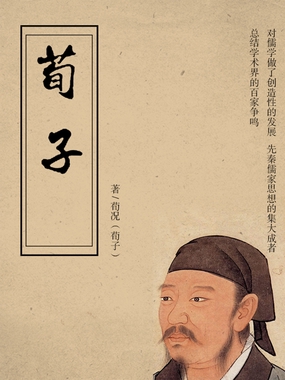 对儒学做了创造性的发展 先秦儒家思想的集大成者
总结学术界的百家争鸣
荀子
著/荀况（荀子）